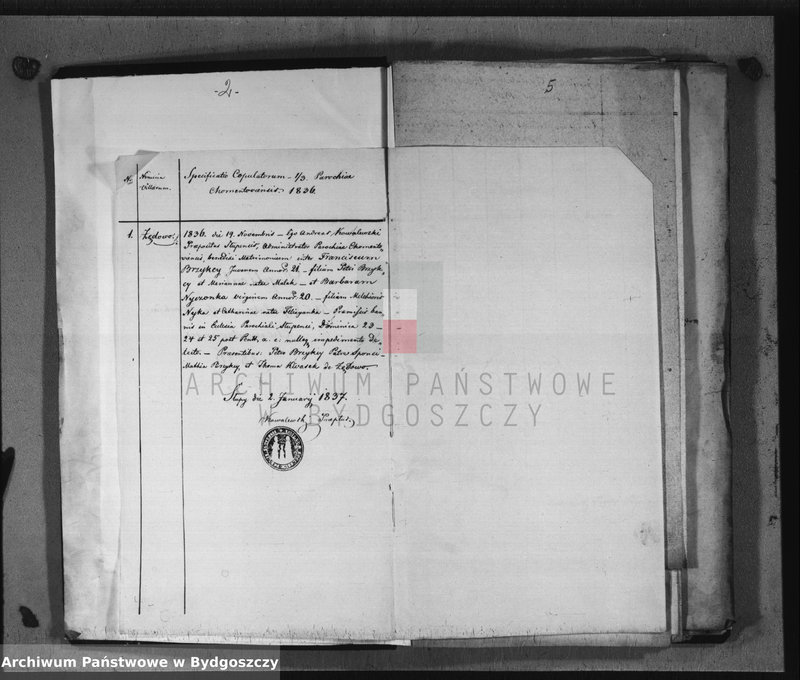 -2-
5
No
Nomina
Villarum.
Specificatio Copulatorum - 1/3. Parochiae
Chomentoviensis 1836.
1.
Zędowo.
1836. die 19. Novembris - Ego Andreas Kowalewski
Praepositus Stupensis, Administrator Parochiae Chomento-
viensis, benedixi Matrimonium inter Franciscum
Brzykcy Juvenem Annor. 26. - filium Petri Brzyk-
cy et Marianae natae Malak - et Barbaram
Nyczonka virginem Annor. 20. - filiam Melchioris
Nyka et Catharinae natae - Praemissis ban-
nis in Ecclesia Parochiali Stupensi, Dominica 23 -
24 et 25 post Pent. a. c. nulloq. impedimento de-
tecto. - Praesentibus Petro Brzykcy Patre Sponsi -
Mathia Brzykcy et Thoma Kwasek de Zędowo.
Stupy die 2. January 1837.
Kowalewski
ARCHIWUM PAŃSTWOWE
W BYDGOSZCZY
Archiwum Państwowe w Bydgoszczy